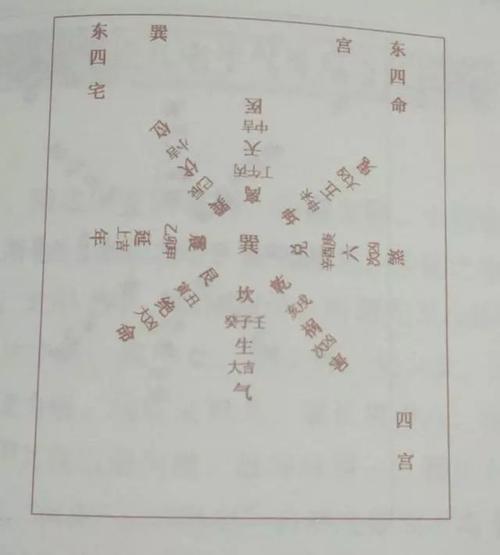 东四宅
巽
宫
东四命
离丁午丙天中吉医
坤申未五大凶鬼
巽巳辰伏小吉位
震乙卯甲延上吉年
巽
兑辛酉庚六次凶煞
艮寅丑绝大凶命
乾亥戌祸次凶害
坎
癸子壬
生
大吉
气
四宫